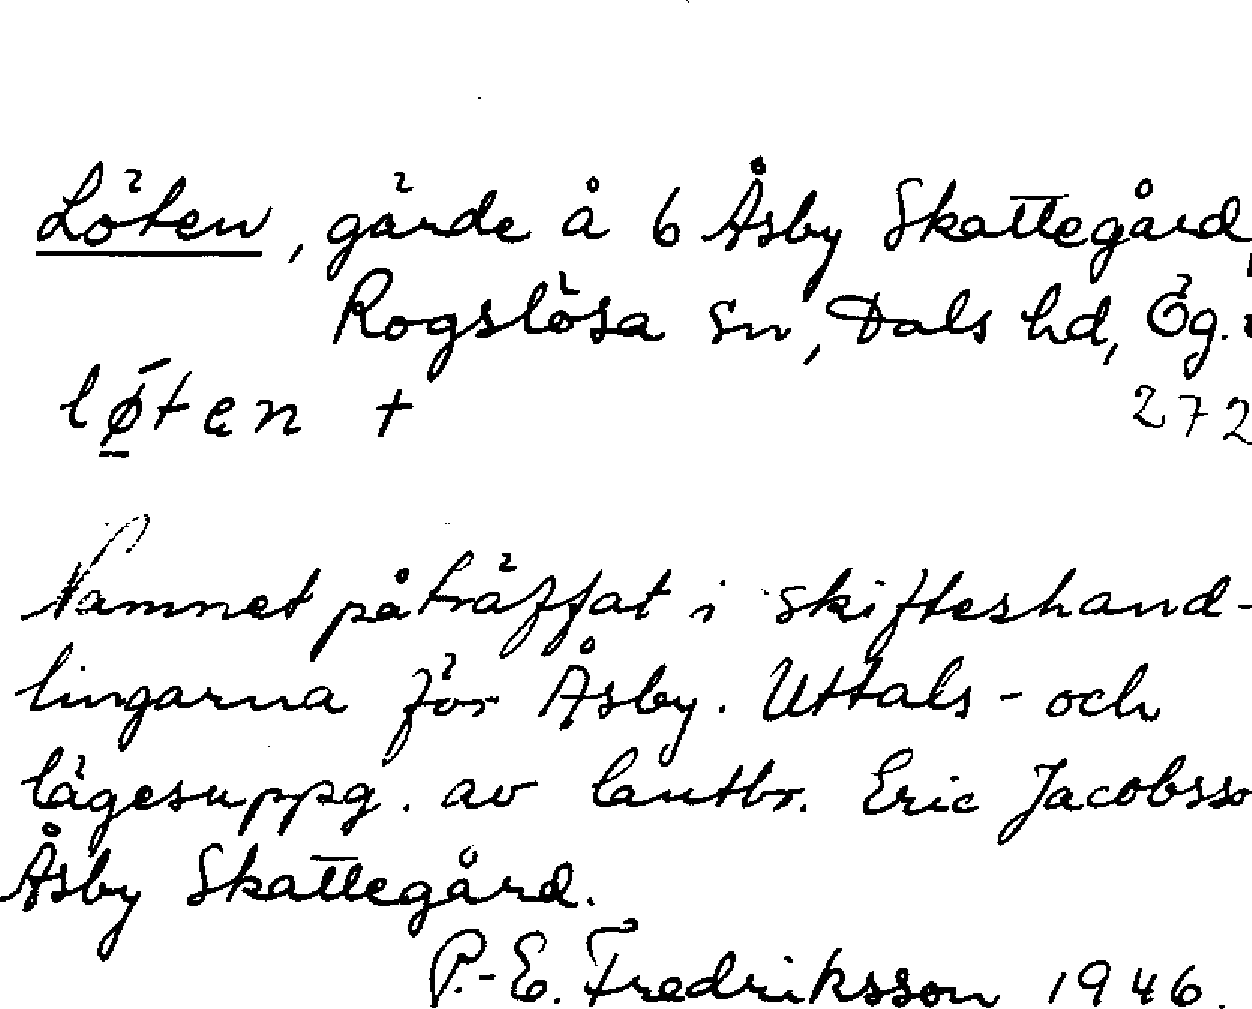 Löten, gärde å 6 Åsby Skattegård,
Rogslösa sn, Dals hd, Ög.
lǿ̱ten +
272
Namnet påträffat i skifteshand-
lingarna för Åsby. Uttals- och
lägesuppg. av lantbr. Eric Jacobsso
Åsby Skattegård.
P.-E. Fredriksson 1946.